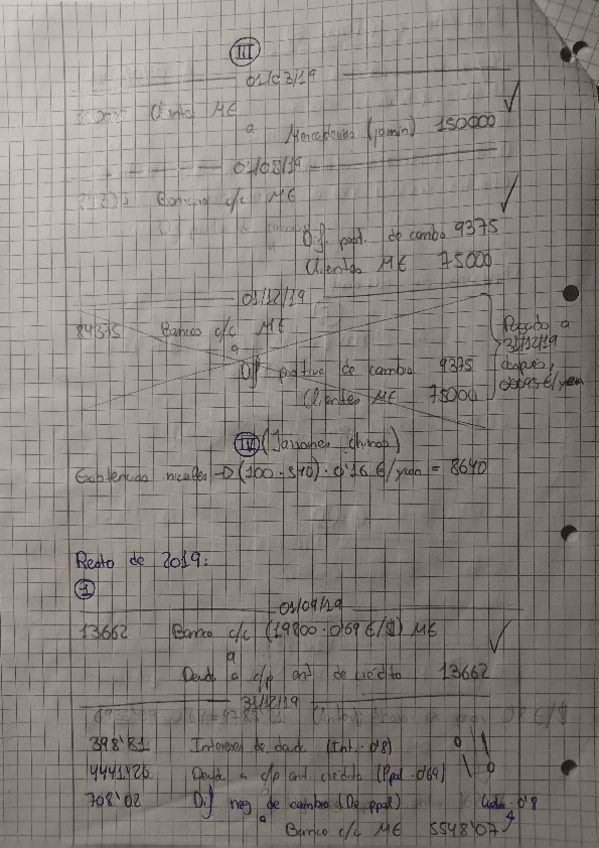 III
01/03/19
Clientes M€
a
Mercaderías (jamón) 150000
01/08/19
Banco c/c M€
a Dif. post. de cambo 9375
Clientes M€ 75000
01/12/19
84375 Banco c/c M€
a
Dif positiva de cambio 9375
Clientes M€ 75000
Pasado a
31/12/19
después,
0'0095€/yen
IV (Jarrones chinos)
Existencias iniciales → (100 · 540) · 0'16 €/yuan = 8640
Resto de 2019:
1
01/09/19
13662 Banco c/c (19800 · 0'69 €/$) M€
a
Deuda c/p ent de crédito 13662
31/12/19
398'81 Intereses de deuda (Int. · 0'8)
4441'26 Deuda a c/p ent crédito (Ppal · 0'69)
708'02 Dif neg de cambio (De ppal)
· 0'8
a Banco c/c M€ 5548'07